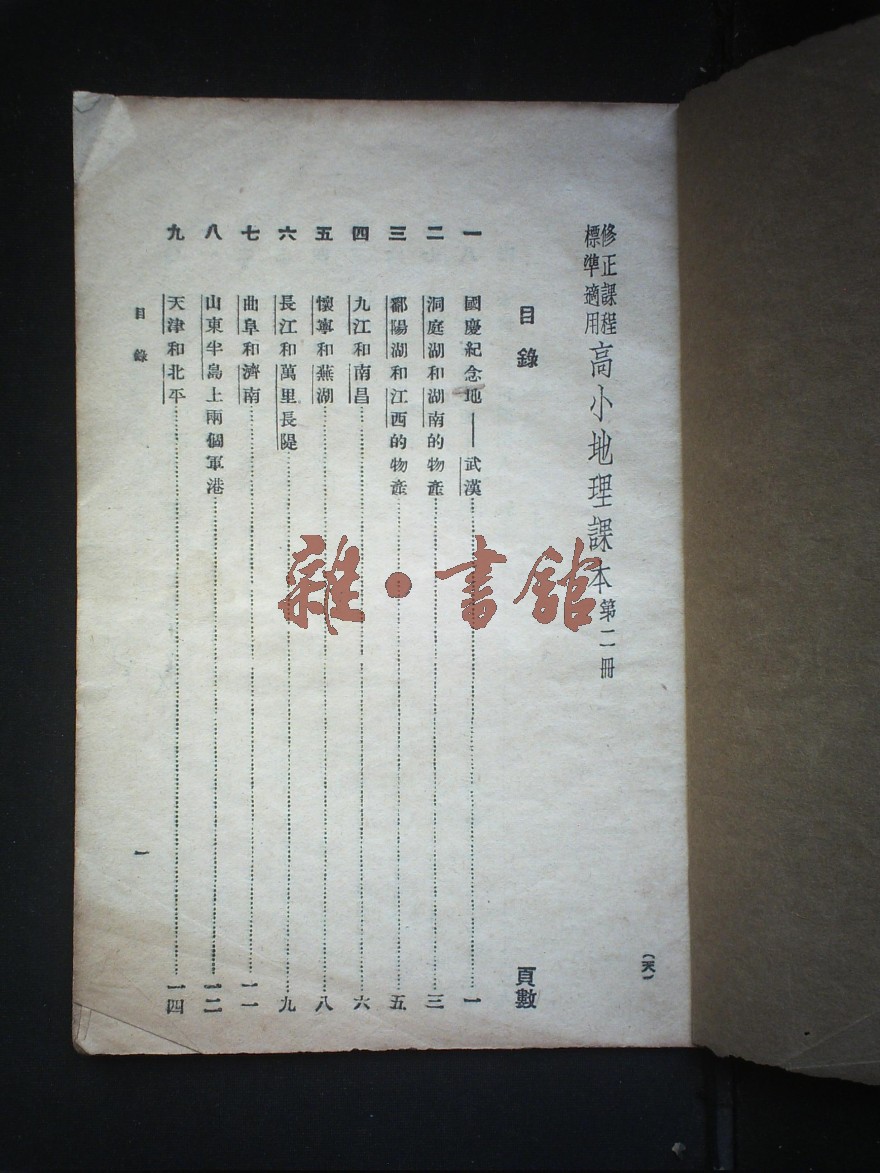 修正課程標準適用 高小地理課本 第二冊
目錄 頁數
一 國慶紀念地——武漢 一
二 洞庭湖和湖南的物產 三
三 鄱陽湖和江西的物產 五
四 九江和南昌 六
五 懷寧和蕪湖 八
六 長江和萬里長隄 九
七 曲阜和濟南 一一
八 山東半島上兩個軍港 一二
九 天津和北平 一四
目錄 一
雜·書館